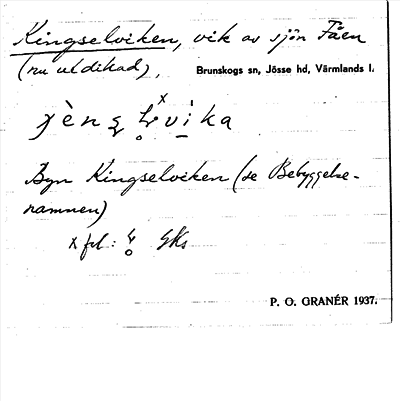 Kingselviken, vik av sjön Fåen
(nu utdikad), Brunskogs sn, Jösse hd, Värmlands l.
Byn Kingselviken (se Bebyggelse-
namnen)
P. O. GRANÉR 1937.